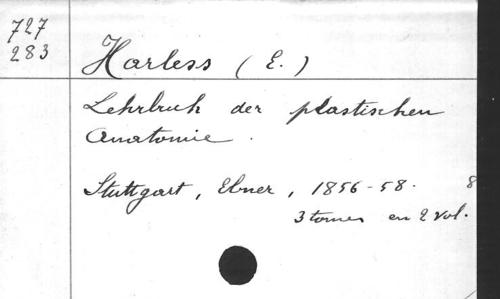 727
283
Harless (E.)
Lehrbuch der plastischen
Anatomie.
Stuttgart, Ebner, 1856-58. 8
3 tomes en 2 vol.